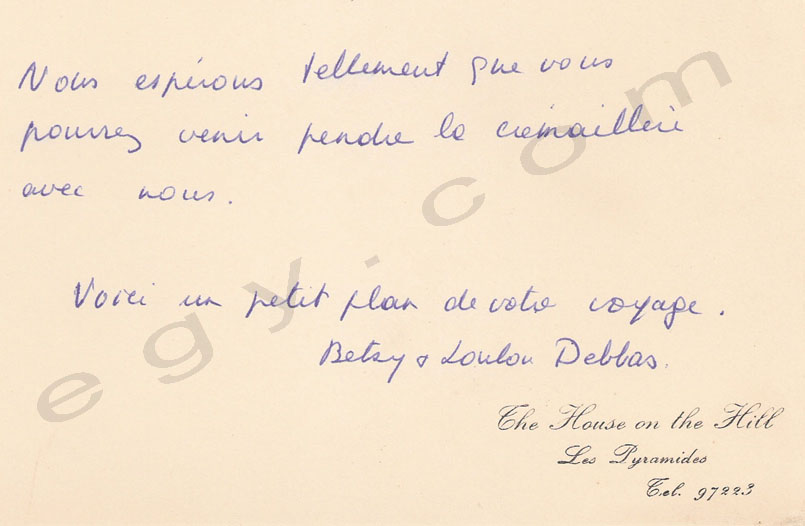 Nous espérons tellement que vous
pourrez venir pendre la crémaillère
avec nous.
Voici un petit plan de votre voyage.
Betsy & Loulou Debbas.
The House on the Hill
Les Pyramides
Tel. 97223
egy.com